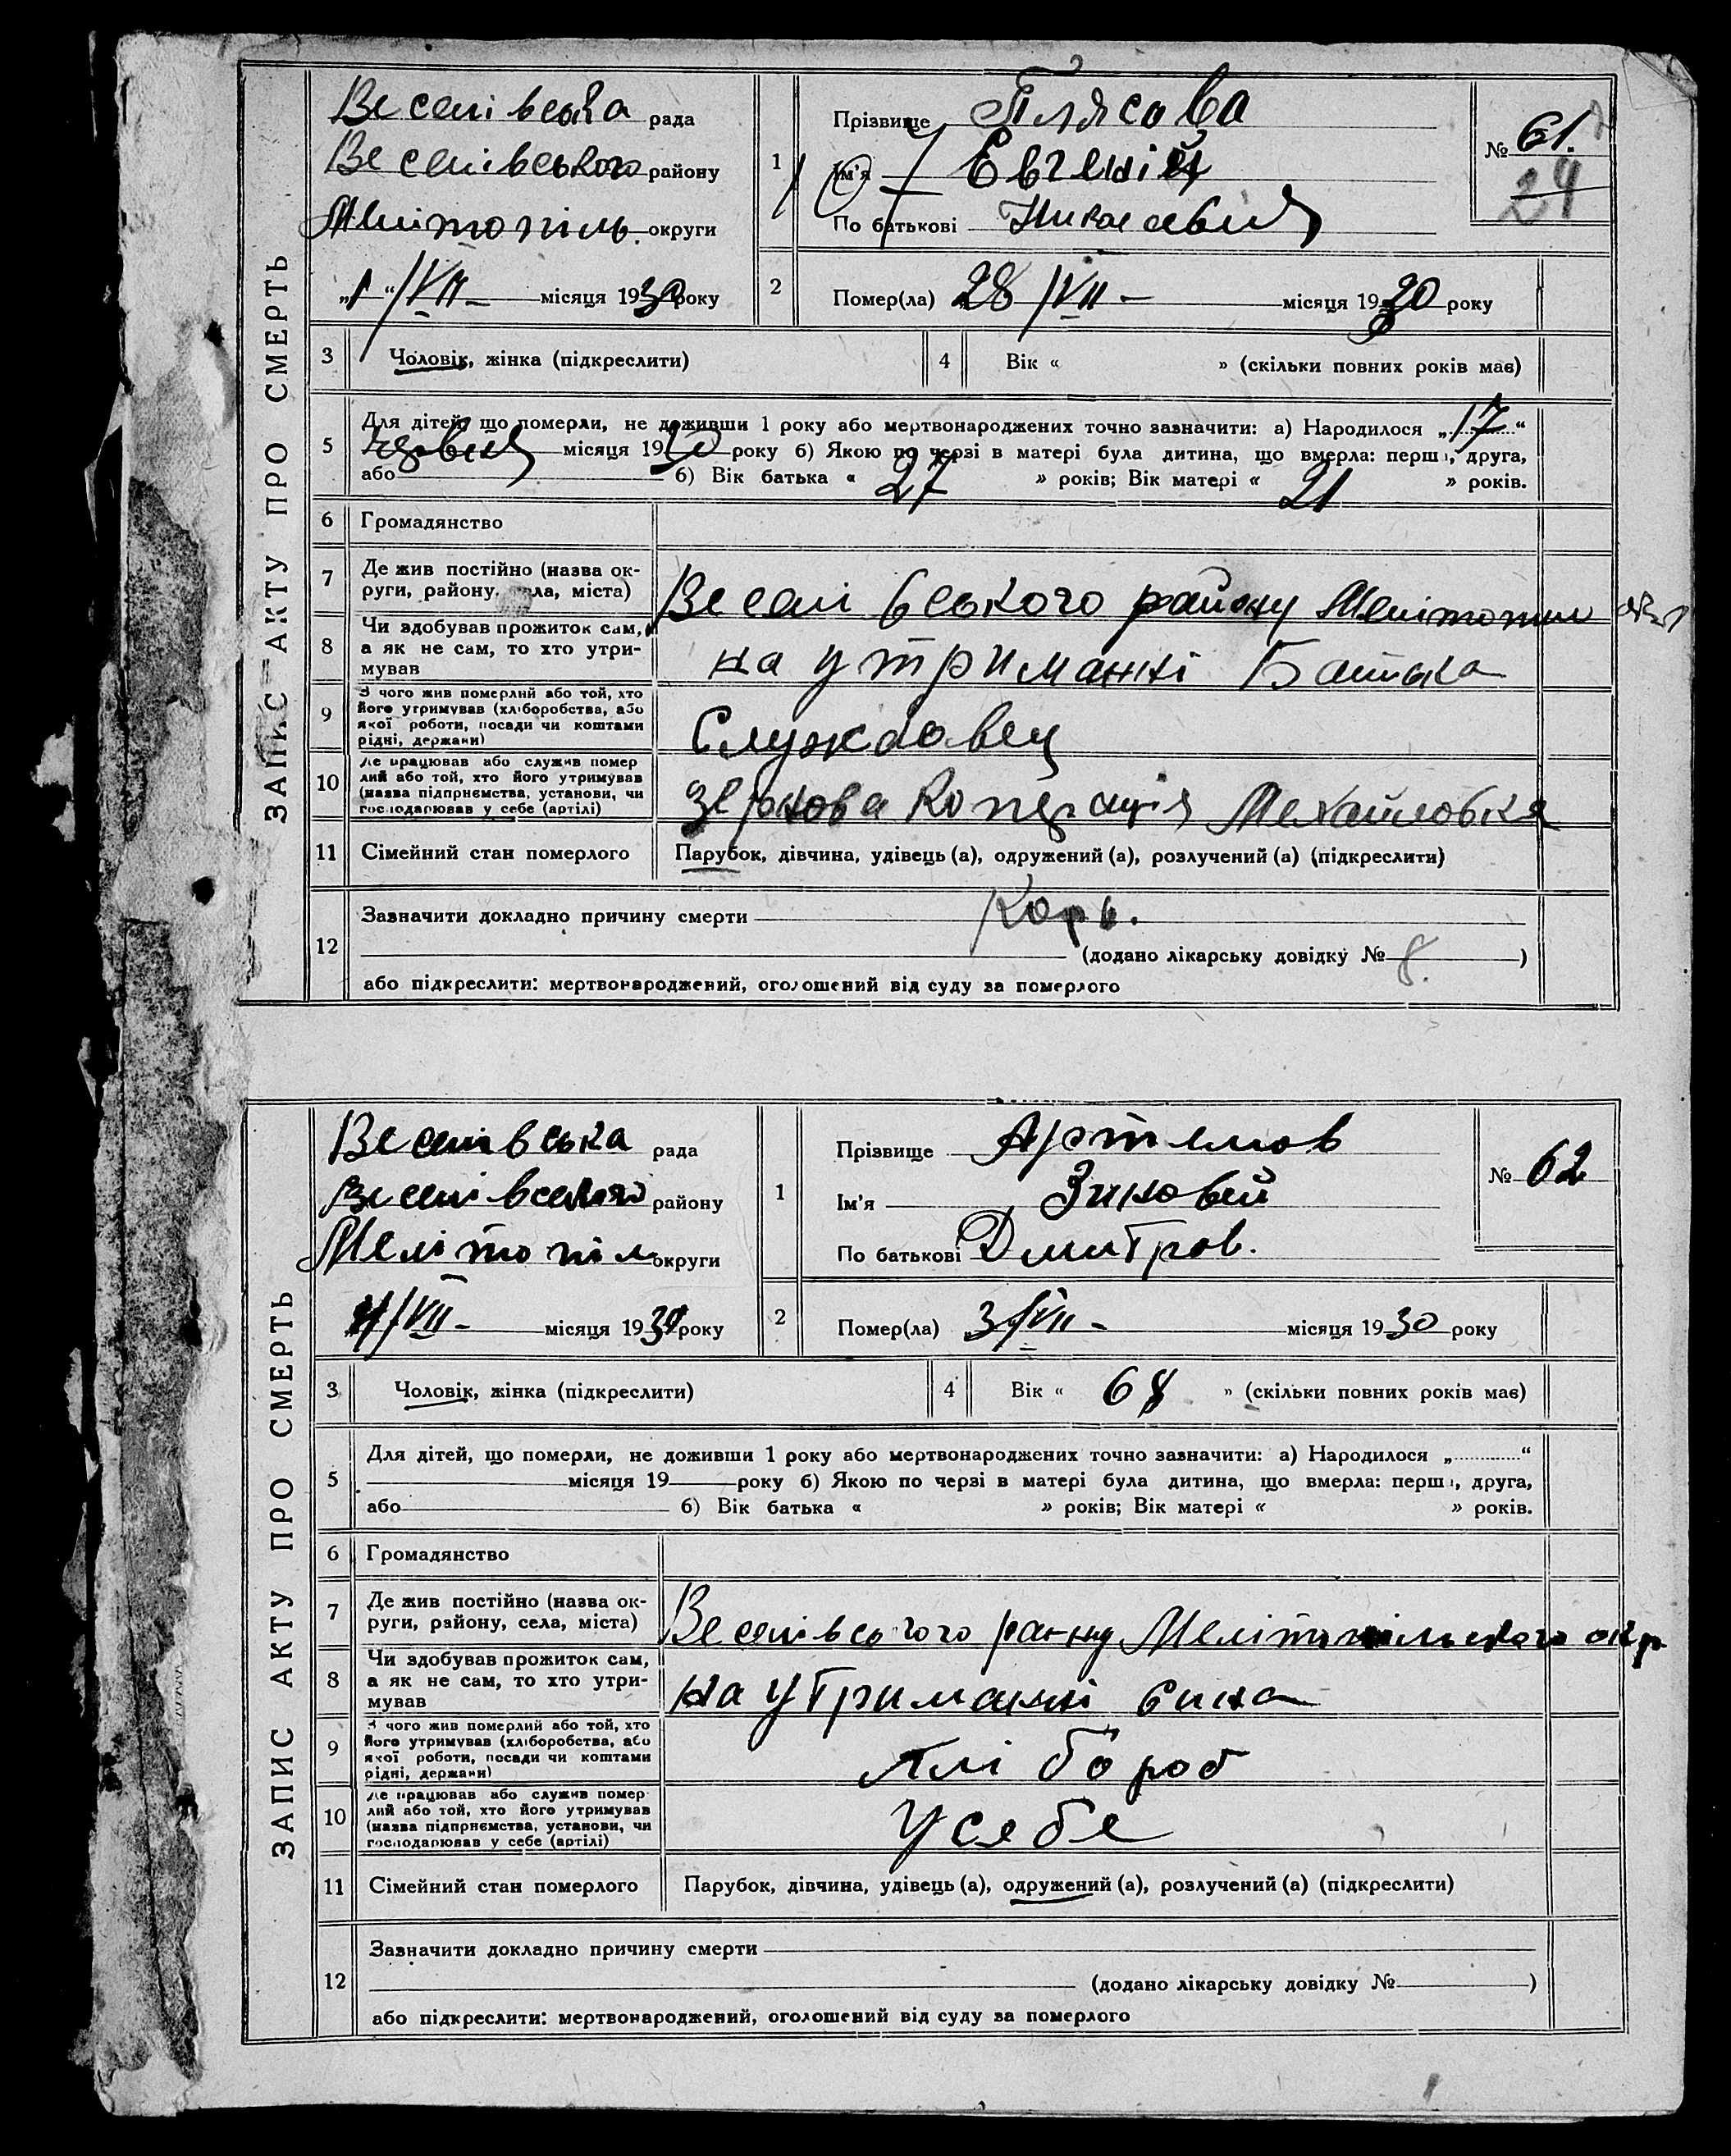 ЗАПИС АКТУ ПРО СМЕРТЬ
Веселівська рада
Веселівського району
Мелітопіль. округи
„1“/VII- місяця 1930 року
1
Прізвище Плясова
Ім'я Евгеній
По батькові Николаевич
№ 61.
24
2
Помер(ла) 28/VII- місяця 1930 року
3 Чоловік, жінка (підкреслити)
4 Вік « » (скільки повних років має)
5 Для дітей, що померли, не доживши 1 року або мертвонароджених точно зазначити: а) Народилося „17“
місяця 1930 року б) Якою по черзі в матері була дитина, що вмерла: перша, друга,
або б) Вік батька « 27 » років; Вік матері « 21 » років.
6 Громадянство
7 Де жив постійно (назва округи, району, села, міста) Веселівського району Мелітопил окр
8 Чи здобував прожиток сам, а як не сам, то хто утримував на утриманні Батька
9 З чого жив померлий або той, хто його утримував (хліборобства, або якої роботи, посади чи коштами рідні, держави) Службовец
10 Де працював або служив померлий або той, хто його утримував (назва підприємства, установи, чи господарював у себе (артілі) Зернова Коперація Михайловка
11 Сімейний стан померлого Парубок, дівчина, удівець (а), одружений (а), розлучений (а) (підкреслити)
12 Зазначити докладно причину смерти Корь.
(додано лікарську довідку № 8. )
або підкреслити: мертвонароджений, оголошений від суду за померлого
ЗАПИС АКТУ ПРО СМЕРТЬ
Веселівська рада
Веселівського району
Мелітопіл округи
/VII- місяця 1930 року
1
Прізвище Артемов
Ім'я Зиновей
По батькові Дмитров.
№ 62
2
Помер(ла) 3/VII- місяця 1930 року
3 Чоловік, жінка (підкреслити)
4 Вік « 68 » (скільки повних років має)
5 Для дітей, що померли, не доживши 1 року або мертвонароджених точно зазначити: а) Народилося „ “
місяця 19 року б) Якою по черзі в матері була дитина, що вмерла: перша, друга,
або б) Вік батька « » років; Вік матері « » років.
6 Громадянство
7 Де жив постійно (назва округи, району, села, міста) Веселівсього раину Мелітопільского окр
8 Чи здобував прожиток сам, а як не сам, то хто утримував на утриманні сина
9 З чого жив померлий або той, хто його утримував (хліборобства, або якої роботи, посади чи коштами рідні, держави) хлібороб
10 Де працював або служив померлий або той, хто його утримував (назва підприємства, установи, чи господарював у себе (артілі) У себе
11 Сімейний стан померлого Парубок, дівчина, удівець (а), одружений (а), розлучений (а) (підкреслити)
12 Зазначити докладно причину смерти
(додано лікарську довідку № )
або підкреслити: мертвонароджений, оголошений від суду за померлого